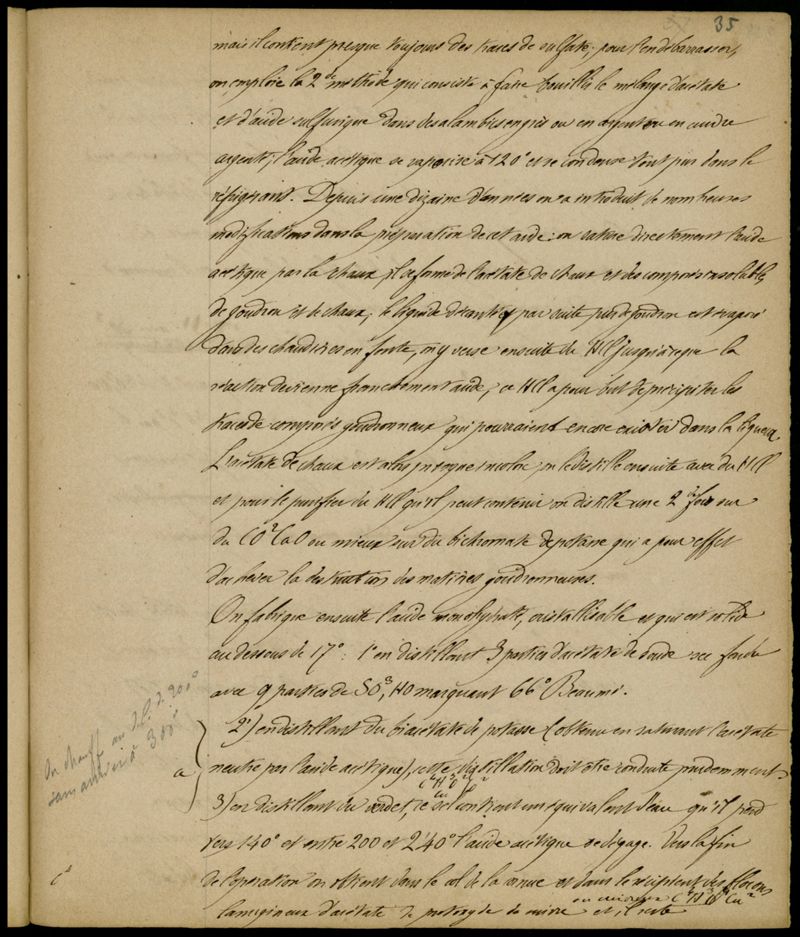 35
mais il contient presque toujours des traces de sulfate; pour l'en débarrasser,
on emploie la 2de méthode qui consiste à faire bouillir le mélange d'acétate
et d'acide sulfurique dans des alambics en grès ou en argent ou en cuivre
argenté; l'acide acétique se vaporise à 120° et se condense tout pur dans le
réfrigérant. Depuis une dizaine d'années on a introduit de nombreuses
modifications dans la préparation de cet acide: on sature directement l'acide
acétique par la chaux, il se forme de l'acétate de chaux et des composés insolubles
de goudron et de chaux; le liquide décanté par suite pur de goudron est évaporé
dans des chaudières en fonte, on y verse ensuite du HCl jusqu'à ce que la
réaction devienne franchement acide; ce HCl a pour but de précipiter les
traces de composés goudronneux qui pourraient encore exister dans la liqueur.
L'acétate de chaux est alors presque incolore; on le distille ensuite avec du HCl
et pour le purifier du HCl qu'il peut contenir on distille une 2de fois sur
du CO²CaO ou mieux sur du bichromate de potasse qui a pour effet
d'achever la destruction des matières goudronneuses.
On fabrique ensuite l'acide monohydraté, cristallisable et qui est solide
au dessous de 17°: 1° en distillant 3 parties d'acétate de soude sec fondu
avec 9 parties de SO³,HO marquant 66° Beaumé.
2°) en distillant du biacétate de potasse (obtenu en saturant l'acétate
neutre par l'acide acétique), cette distillation doit être conduite prudemment.
On chauffe au d. d. 200°
sans arriver à 300°
a
3) en distillant du verdet, ce sel contient un équivalent d'eau qu'il perd
vers 140° et entre 200 et 240° l'acide acétique se dégage. Vers la fin
de l'opération on obtient dans le col de la cornue et dans le récipient des flocons
lanugineux d'acétate de protoxyde de cuivre et il reste